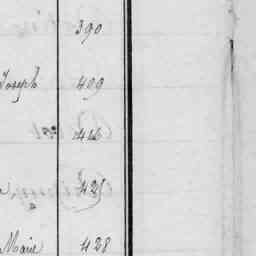 390
Joseph 409
416
425
Marie 428